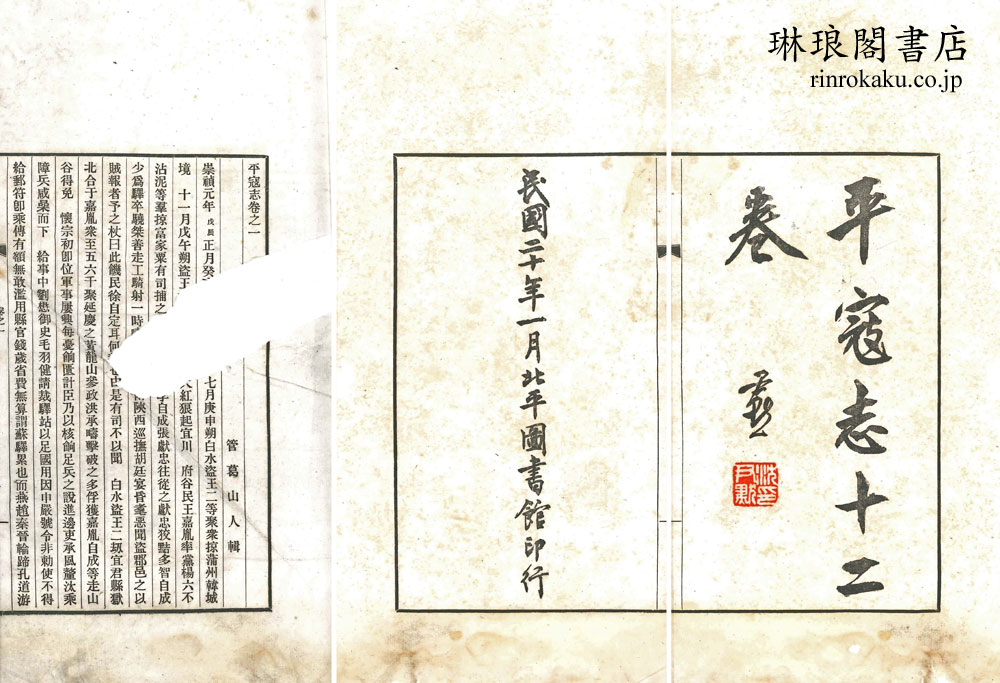 琳琅閣書店
rinrokaku.co.jp
平寇志十二
卷
沈印尹默
民國二十年一月北平圖書館印行
平寇志卷之一
管葛山人輯
崇禎元年戊辰正月癸 七月庚申朔白水盜王二等聚衆掠蒲州韓城
境 十一月戊午朔盜王 紅狼起宜川 府谷民王嘉胤率黨楊六不
沾泥等羣掠富家粟有司捕之 自成張獻忠往從之獻忠狡黠多智自成
少爲驛卒驍桀善走工騎射一時 陝西巡撫胡廷宴昏耄惡聞盜郡邑之以
賊報者予之杖曰此饑民徐自定耳何 是有司不以聞 白水盜王二刼宜君縣獄
北合于嘉胤衆至五六千聚延慶之黃龍山參政洪承疇擊破之多俘獲嘉胤自成等走山
谷得免 懷宗初卽位軍事屢興每憂餉匱計臣乃以核餉足兵之說進邊吏承風釐汰乘
障兵咸槩而下 給事中劉懋御史毛羽健請裁驛站以足國用因申嚴號令非勅使不得
給郵符卽乘傳有額無敢濫用縣官錢歲省費無算謂蘇驛累也而燕趙秦晉輪蹄孔道游